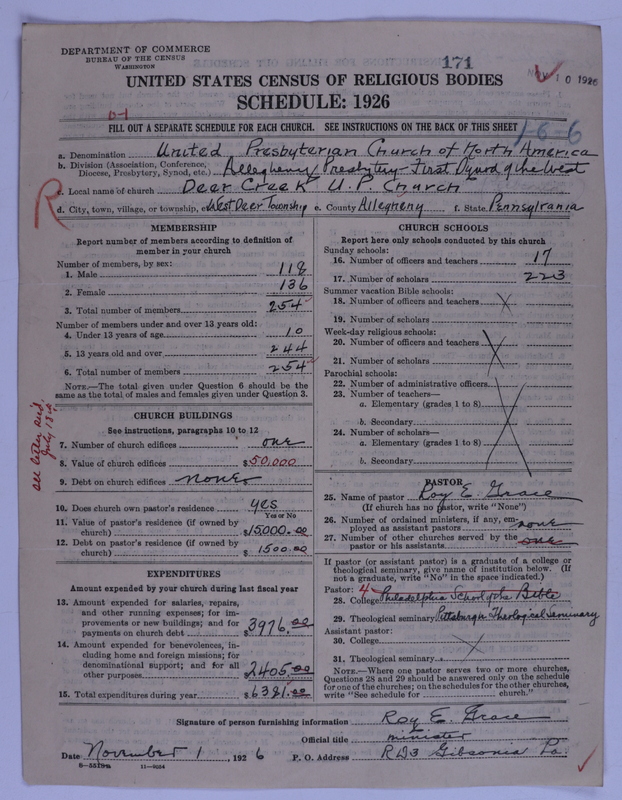 DEPARTMENT OF COMMERCE
BUREAU OF THE CENSUS
WASHINGTON
171
10 1926
UNITED STATES CENSUS OF RELIGIOUS BODIES
SCHEDULE: 1926
0-1
FILL OUT A SEPARATE SCHEDULE FOR EACH CHURCH. SEE INSTRUCTIONS ON THE BACK OF THIS SHEET
1-6-6
a. Denomination United Presbyterian Church of North America
b. Division (Association, Conference, Diocese, Presbytery, Synod, etc.) Allegheny Presbytery First Synod of the West
c. Local name of church Deer Creek U.P. Church
R
d. City, town, village, or township, West Deer Township e. County Allegheny f. State Pennsylvania
MEMBERSHIP
Report number of members according to definition of
member in your church
Number of members, by sex:
1. Male 118
2. Female 136
3. Total number of members 254
Number of members under and over 13 years old:
4. Under 13 years of age 10
5. 13 years old and over 244
6. Total number of members 254
NOTE.—The total given under Question 6 should be the
same as the total of males and females given under Question 3.
CHURCH BUILDINGS
See instructions, paragraphs 10 to 12
7. Number of church edifices one
8. Value of church edifices $50,000
9. Debt on church edifices none
10. Does church own pastor's residence yes
Yes or No
11. Value of pastor's residence (if owned by
church) $15000.00
12. Debt on pastor's residence (if owned by
church) $1500.00
EXPENDITURES
Amount expended by your church during last fiscal year
13. Amount expended for salaries, repairs,
and other running expenses; for im-
provements or new buildings; and for
payments on church debt $3976.00
14. Amount expended for benevolences, in-
cluding home and foreign missions; for
denominational support; and for all
other purposes $2405.00
15. Total expenditures during year $6381.00
see letter
CHURCH SCHOOLS
Report here only schools conducted by this church
Sunday schools:
16. Number of officers and teachers 17
17. Number of scholars 223
Summer vacation Bible schools:
18. Number of officers and teachers
19. Number of scholars
Week-day religious schools:
20. Number of officers and teachers
21. Number of scholars
Parochial schools:
22. Number of administrative officers
23. Number of teachers—
a. Elementary (grades 1 to 8)
b. Secondary
24. Number of scholars—
a. Elementary (grades 1 to 8)
b. Secondary
PASTOR
25. Name of pastor Roy E. Grace
(If church has no pastor, write "None")
26. Number of ordained ministers, if any, em-
ployed as assistant pastors none
27. Number of other churches served by the
pastor or his assistants one
If pastor (or assistant pastor) is a graduate of a college or
theological seminary, give name of institution below. (If
not a graduate, write "No" in the space indicated.)
Pastor: 4
28. College Philadelphia School of the Bible
29. Theological seminary Pittsburgh Theological Seminary
Assistant pastor:
30. College
31. Theological seminary
NOTE.—Where one pastor serves two or more churches,
Questions 28 and 29 should be answered only on the schedule
for one of the churches; on the schedules for the other churches,
write "See schedule for ____ church."
Signature of person furnishing information Roy E. Grace
Official title minister
Date November 1, 1926 P. O. Address R D 3 Gibsonia Pa.
11—9054